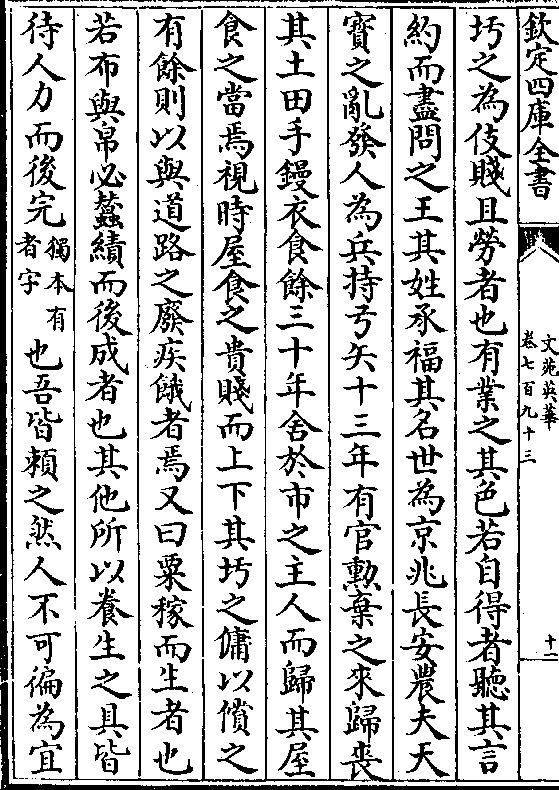 欽定四庫全書
文苑英華
卷七百九十三
十一
圬之為伎賤且勞者也有業之其色若自得者聽其言
約而盡問之王其姓承福其名世為京兆長安農夫天
寳之亂發人為兵持弓矢十三年有官勲棄之來歸喪
其土田手鏝衣食餘三十年舍於市之主人而歸其屋
食之當焉視時屋食之貴賤而上下其圬之傭以償之
有餘則以與道路之廢疾餓者焉又曰粟稼而生者也
若布與帛必蠶績而後成者也其他所以養生之具皆
待人力而後完獨本有者字也吾皆頼之然人不可徧為宜